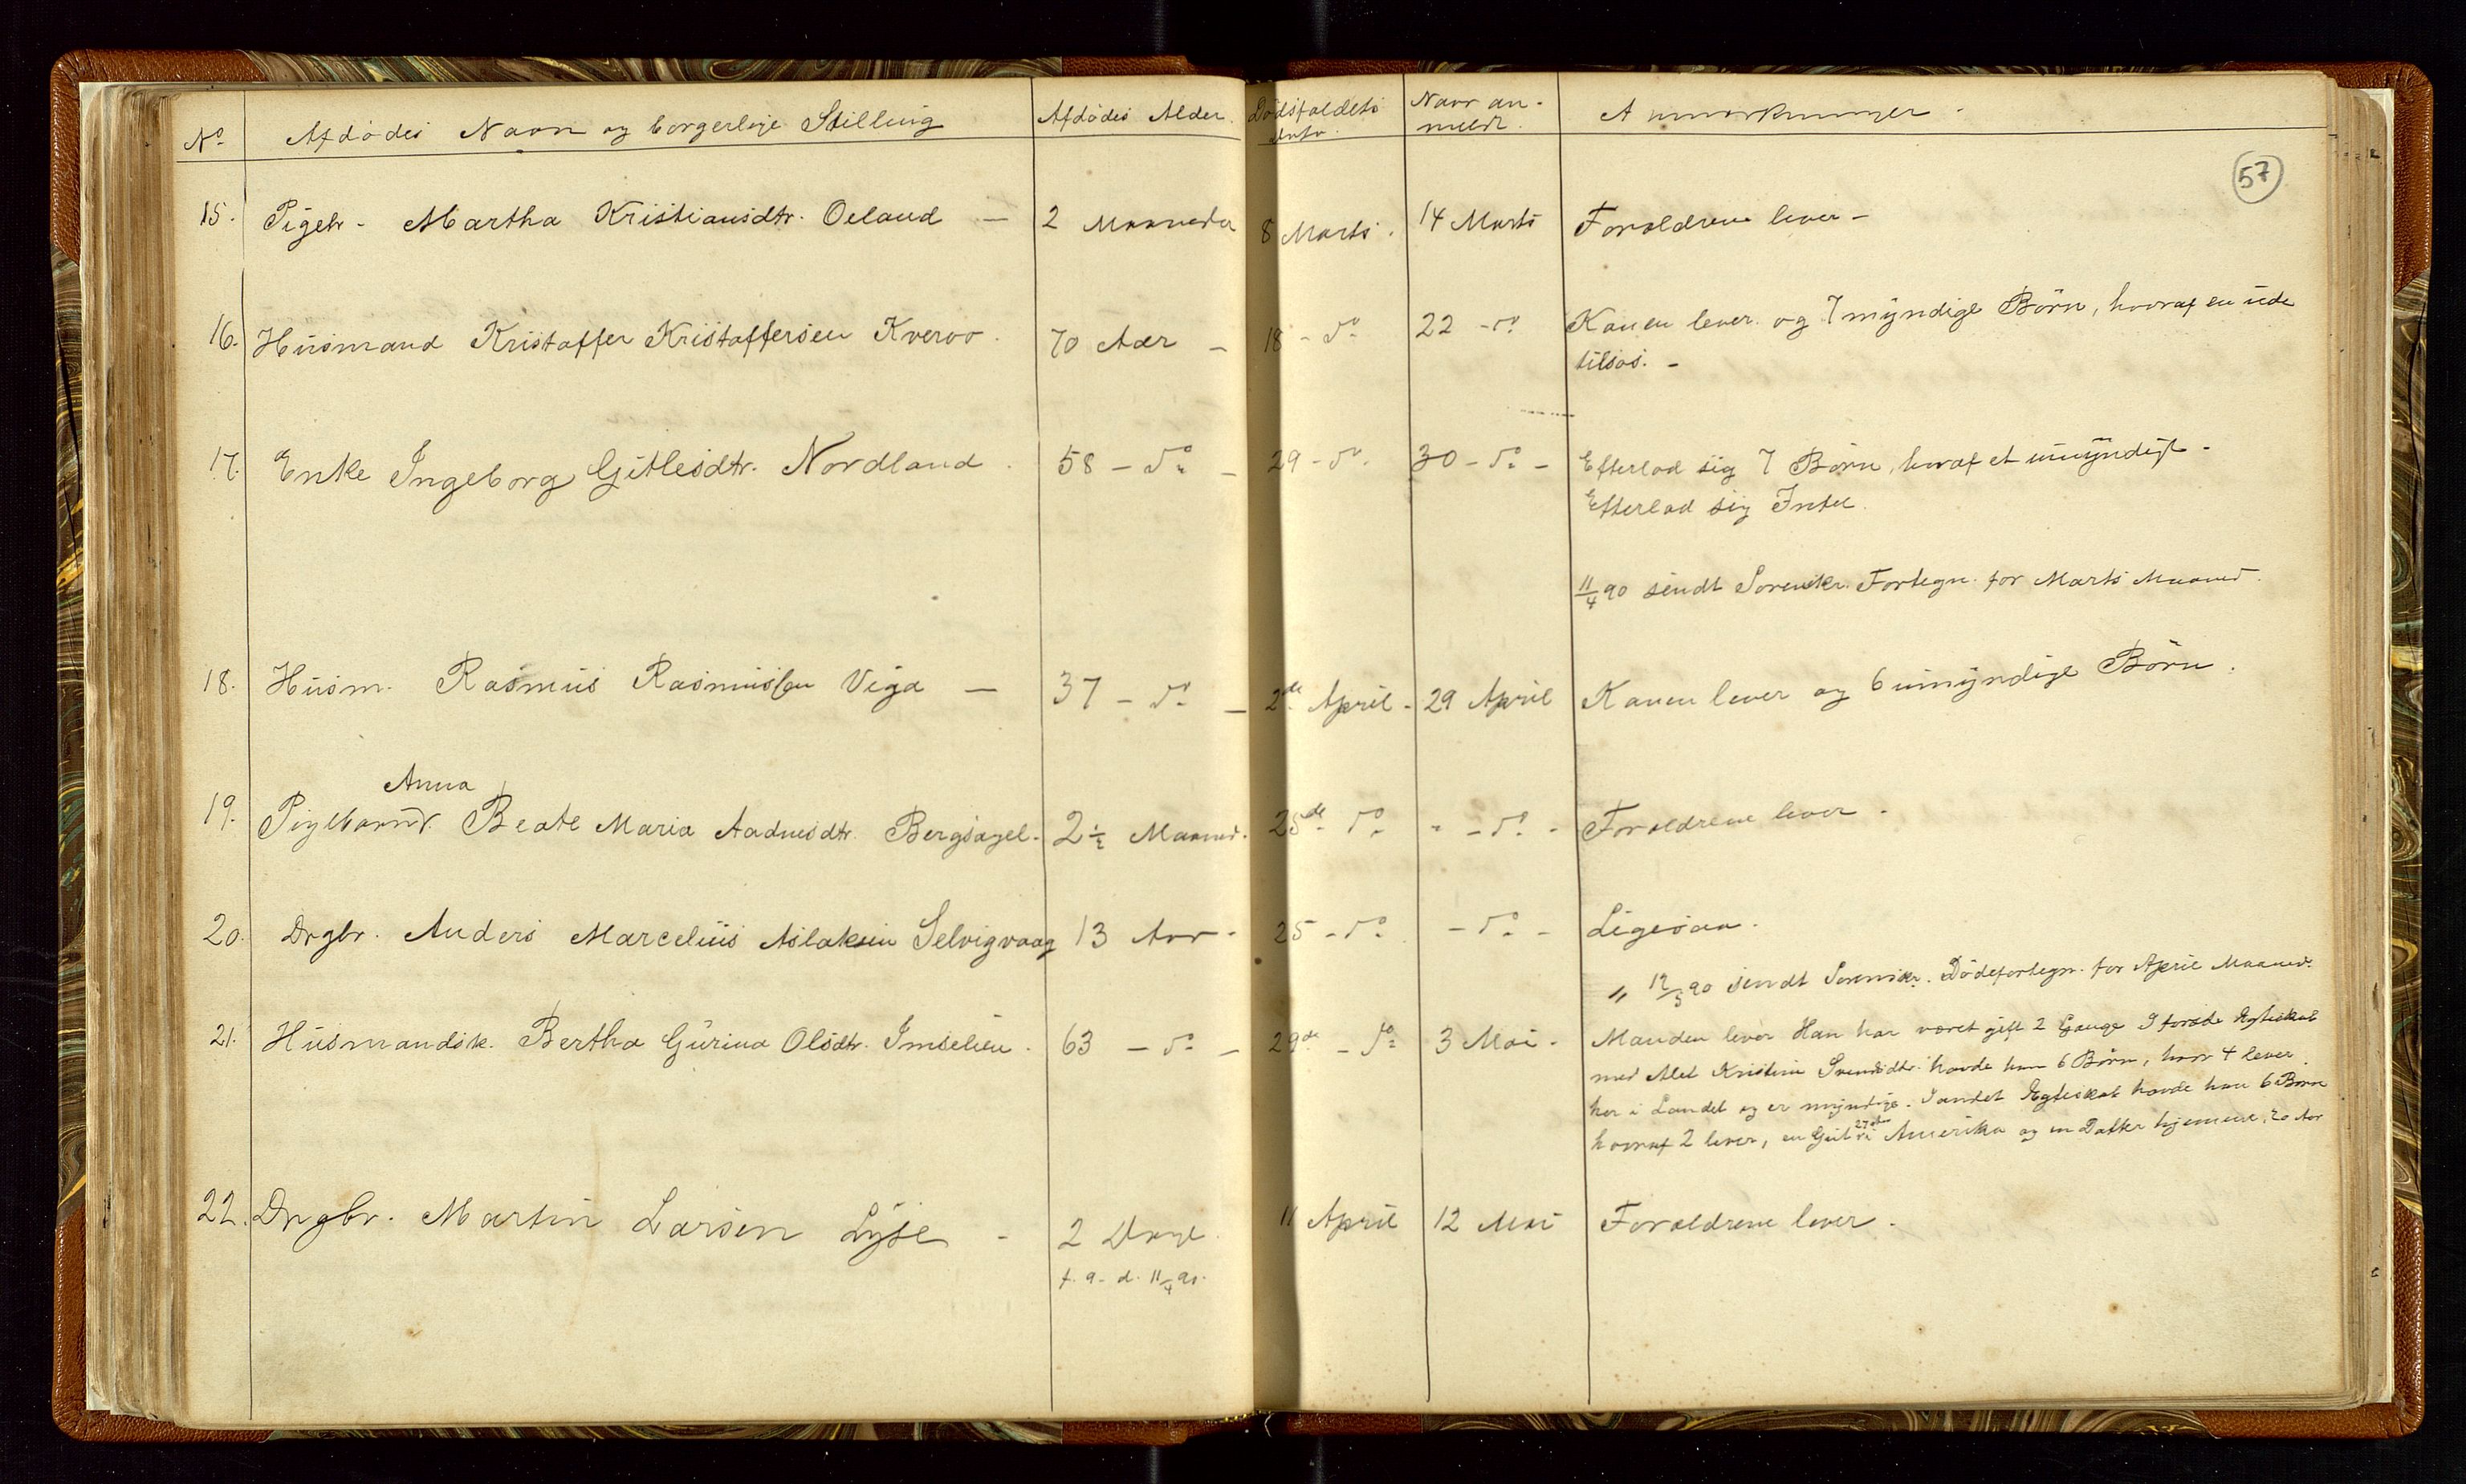 No Afdødes Navn og borgerlige Stilling Afdødes Alder. Dødsfaldets Dato. Naar anmeldt. Anmærkninger.
57
15. Pigebr. Martha Kristiansdtr. Oeland — 2 Maaneder 8 Marts. 14 Marts Forældrene lever —
16. Husmand Kristoffer Kristoffersen Kveroo. 70 Aar — 18 - do 22 - do Konen lever og 7 myndige Børn, hvoraf en ude
tilsøs. —
17. Enke Ingeborg Gitlesdtr. Nordland. 58 - do — 29 - do. 30 - do - Efterlod sig 7 Børn, hvoraf et umyndigt -
Efterlod sig Intet.
11/4 90 sendt Sorenskr. Fortegn. for Marts Maaned.
18. Husm. Rasmus Rasmussen Viga — 37 - do — 2de April - 29 April Konen lever og 6 umyndige Børn.
Anna
19. Pigebarnet Beate Maria Aadnesdtr. Bergsagel - 2½ Maaned. 25de do " - do - Forældrene lever -
20. Drgbr. Anders Marcelius Aslaksen Selvigvaag 13 Aar - 25 - do - do - Ligesaa.
" 12/5 90 sendt Sorenskr. Dødsfortegn. for April Maaned.
21. Husmandsk. Bertha Gurina Olsdtr. Imselien. 63 - do — 29de - do 3 Mai - Manden lever Han har været gift 2 Gange I første Egteskab
med Alet Kristine Svendsdtr. havde han 6 Børn, hvor 4 lever
her i Landet og er myndige. I andet Egteskab havde han 6 Børn
hvoraf 2 lever, en Gut i Amerika og en Datter hjemme, 20 Aar
22. Drgbr. Martin Larsen Lyse - 2 Dage. 11 April 12 Mai Forældrene lever.
f. 9 - d. 11/4 90.